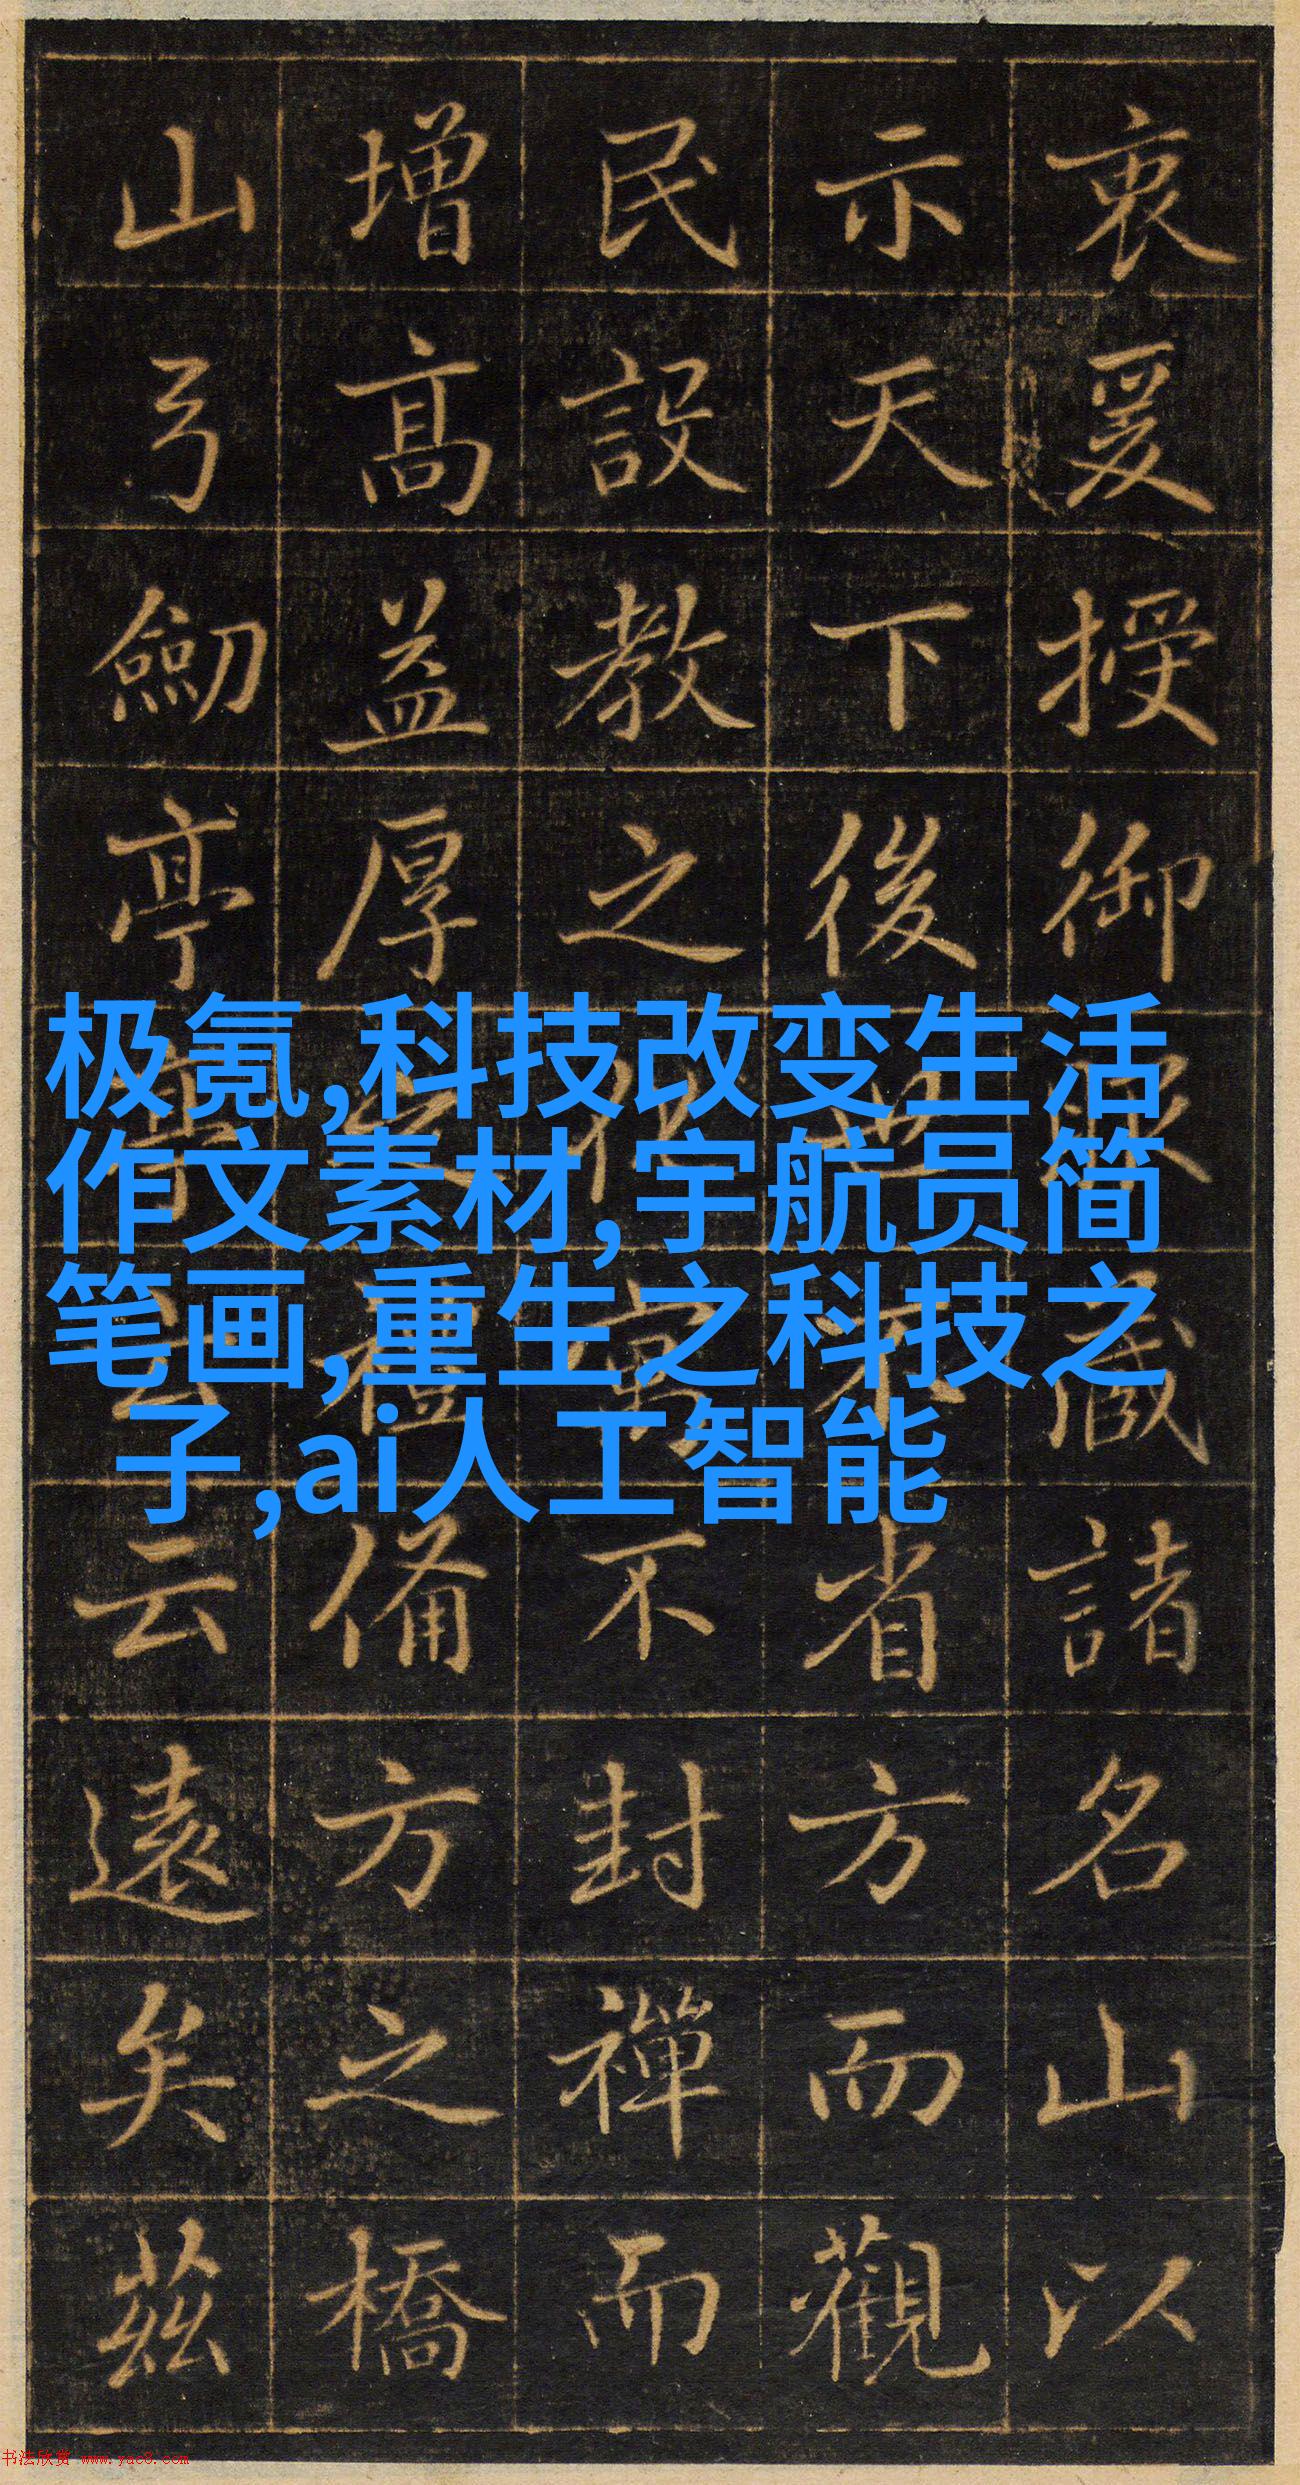 衷爰授御藏諸名山以
示天下後世不省方而觀
民設教之不封禪而
增高益厚之備方之橋
山弓劍亭亭云云遠矣茲
极氪,科技改变生活
作文素材,宇航员简
笔画,重生之科技之
子,ai人工智能
书法欣赏 www.yac8.com